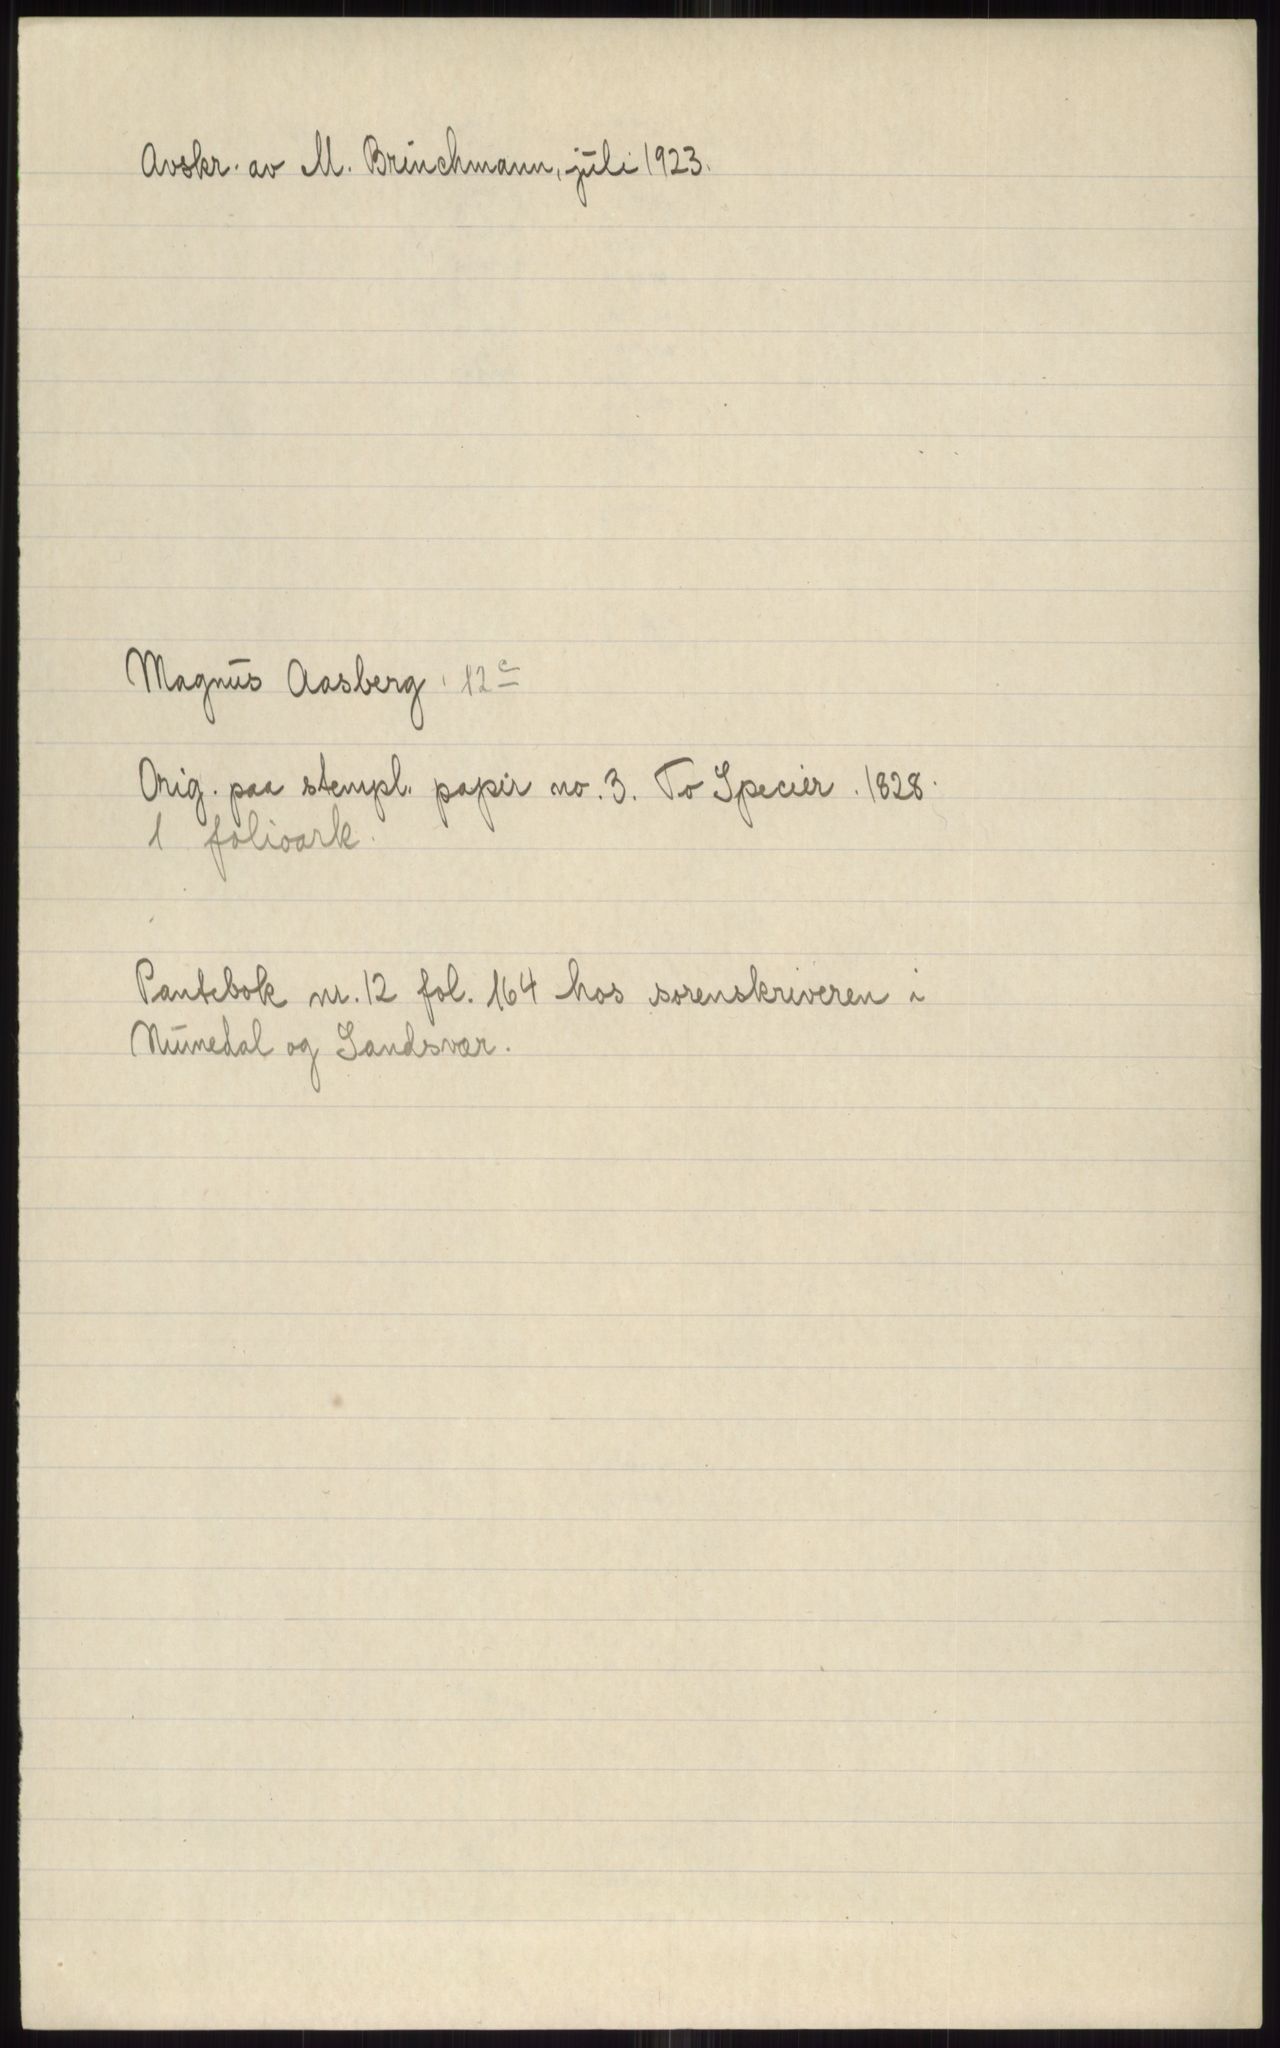 Avskr. av M. Brinchmann, juli 1923.
Magnus Aasberg, 12 c
Orig. paa stempl. papir no. 3. To Specier. 1828.
1 folioark.
Pantebok nr. 12 fol. 164 hos sorenskriveren i
Numedal og Sandsvær.